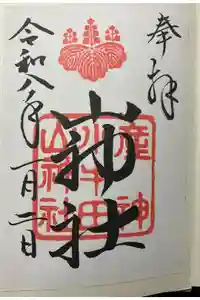 奉拝
産神
小牛田
山神社
山神社
令和八年一月二日